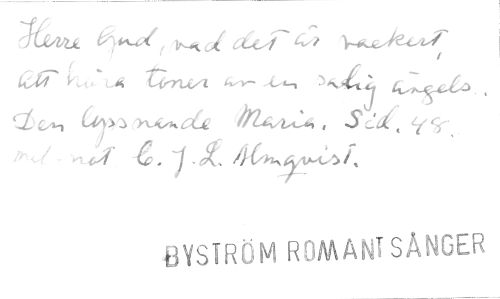 Herre Gud, vad det är vackert,
att höra toner av en salig ängels..
Den lyssnande Maria. Sid. 48.
mel-not C. J. L. Almqvist.
BYSTRÖM ROMANT SÅNGER